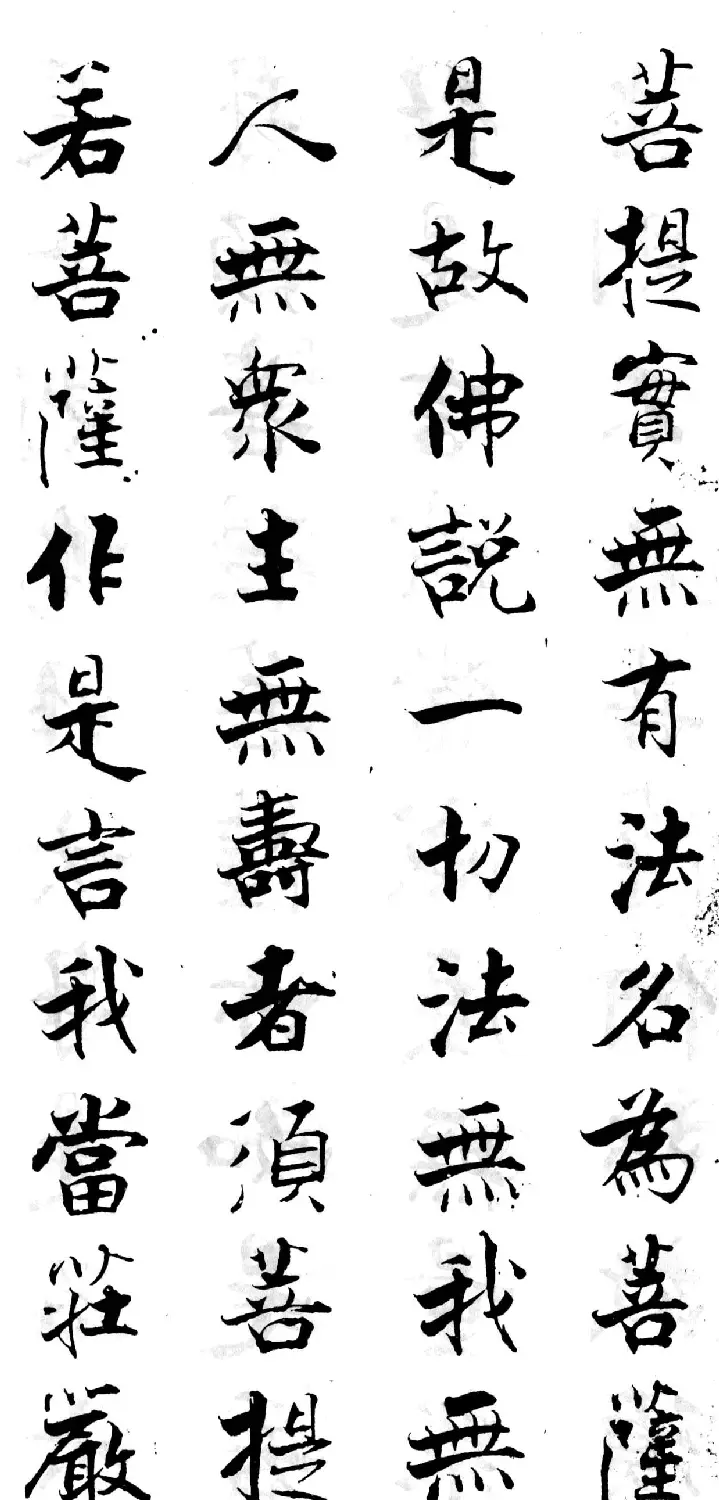 菩提實無有法名為菩薩
是故佛說一切法無我無
人無衆生無壽者須菩提
若菩薩作是言我當莊嚴